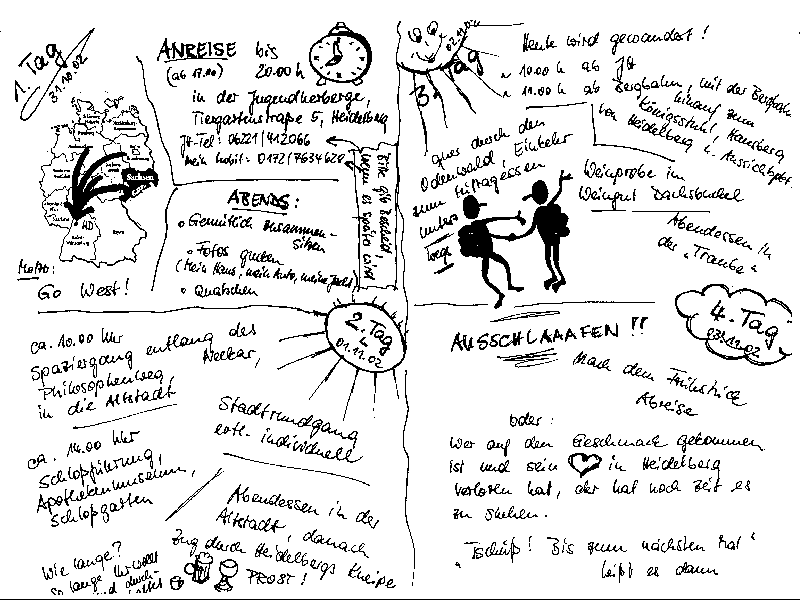 1. Tag
31.10.02
ANREISE bis
(ab 17.00) 20.00 h
in der Jugendherberge,
Tiergartenstraße 5, Heidelberg
JH-Tel: 06221/412066
Mein Mobil: 0172/7634628
Bitte gib Bescheid,
wenn es später wird
Sachsen
HD
Motto:
Go West!
ABENDS:
• Gemütlich zusammen-
sitzen
• Fotos gucken
(Mein Haus, mein Auto, meine Yacht)
• Quatschen
2. Tag
01.11.02
ca. 10.00 Uhr
Spaziergang entlang des
Neckar,
Philosophenweg,
in die Altstadt
Stadtrundgang
evtl. individuell
ca. 14.00 Uhr
Schloßführung,
Apothekenmuseum,
Schloßgarten
Abendessen in der
Altstadt, danach
Zug durch Heidelbergs Kneipen
PROST!
Wie lange?
So lange Ihr wollt
und durch-
3. Tag
02.11.02
Heute wird gewandert!
~ 10.00 h ab JH
~ 11.00 h ab Bergbahn, mit der Bergbahn
hinauf zum
Königsstuhl, Hausberg
von Heidelberg u. Aussichtspkt.
quer durch den
Odenwald, Einkehr
zum Mittagessen
unter-
wegs
Weinprobe im
Weingut Dachsbuckel
Abendessen in
der "Traube"
4. Tag
03.11.02
AUSSCHLAAAFEN!!
Nach dem Frühstück
Abreise
oder:
Wer auf den Geschmack gekommen
ist und sein in Heidelberg
verloren hat, der hat noch Zeit es
zu suchen.
"Tschüß! Bis zum nächsten Mal"
heißt es dann